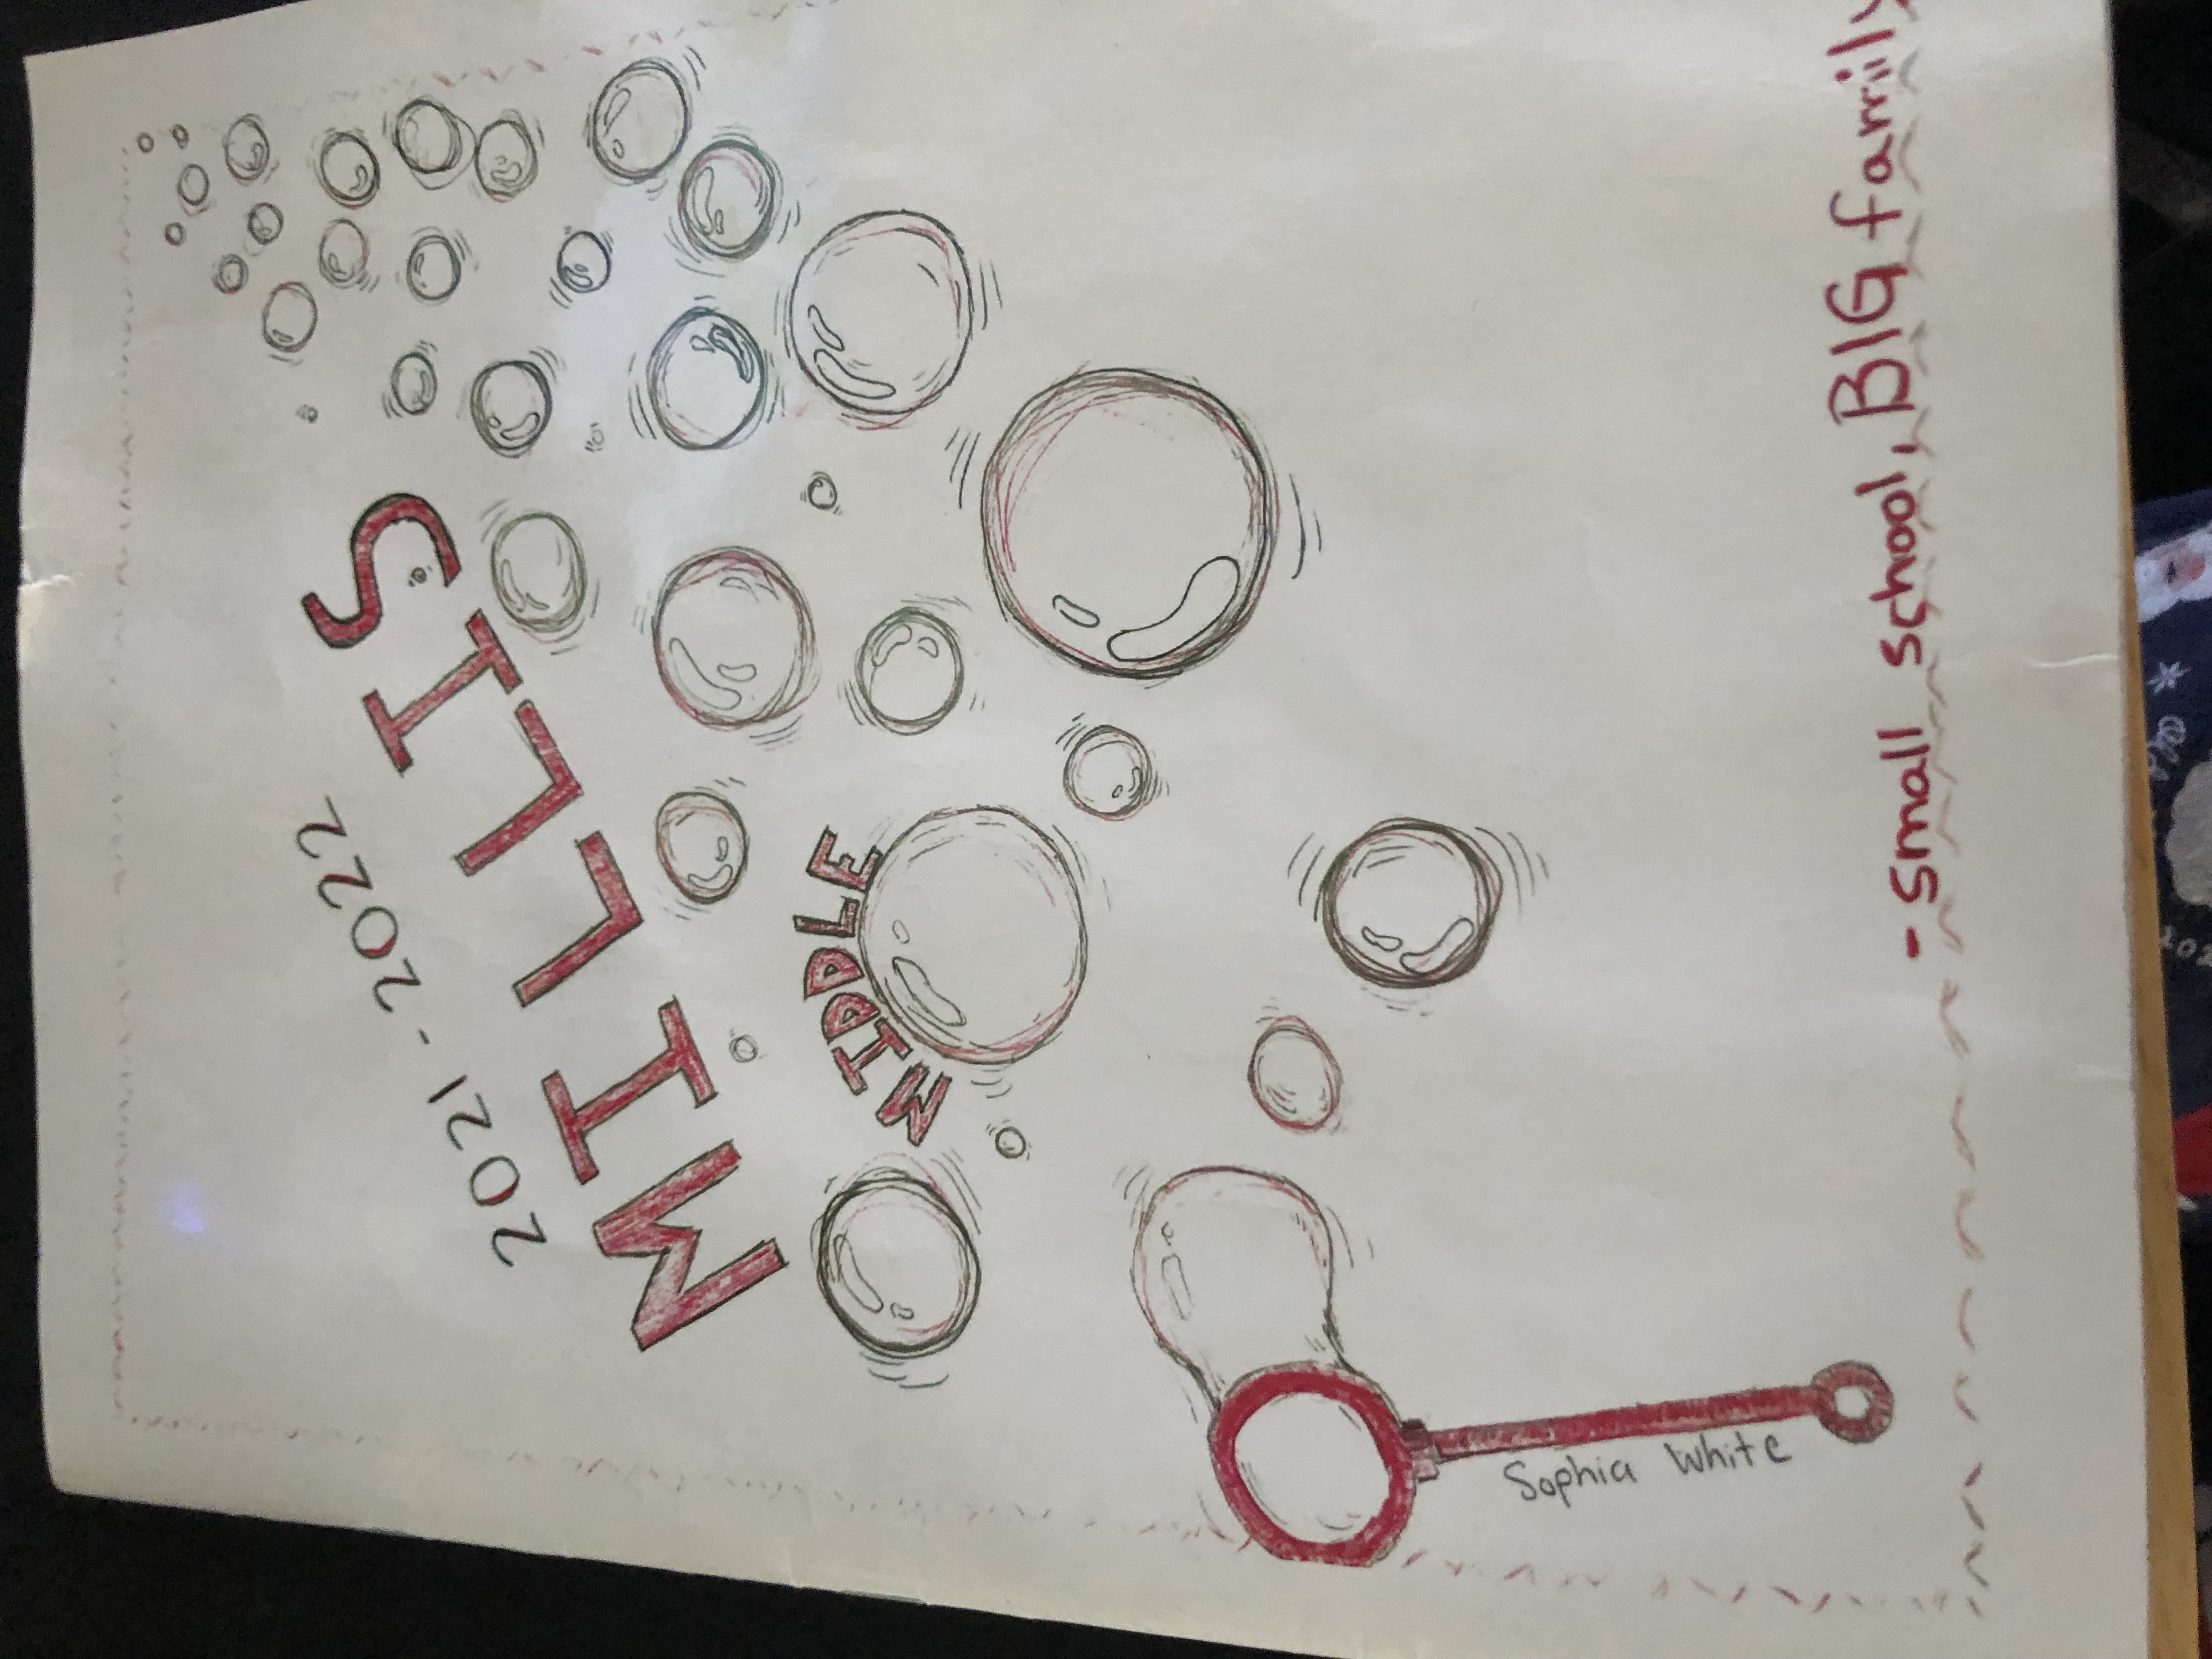 2021 - 2022
MILLIS
MIDDLE
Sophia White
- small school, BIG family